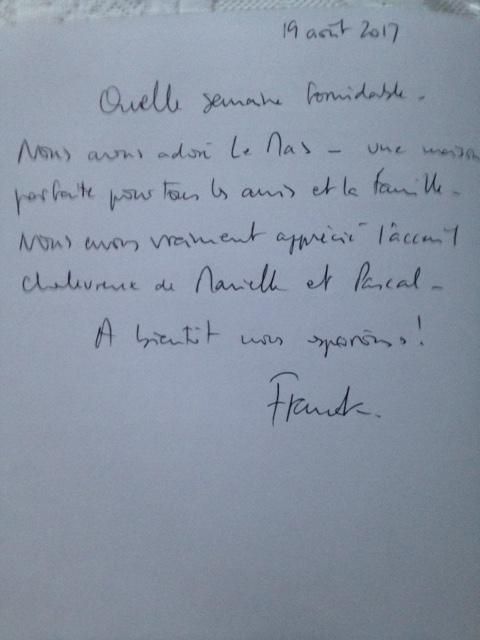 19 août 2017
Quelle semaine formidable.
Nous avons adoré Le Mas - une maison
parfaite pour tous les amis et la famille.
Nous avons vraiment apprécié l'accueil
chaleureux de Marielle et Pascal.
A bientôt nous espérons!
Franck.